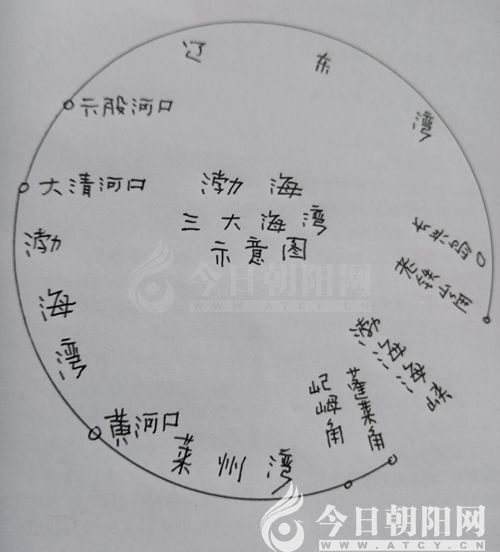 辽东湾
六股河口
大清河口
渤海
三大海湾
示意图
渤海湾
长兴岛
老铁山角
渤海海峡
屺姆角
蓬莱角
黄河口
莱州湾
今日朝阳网
WWW.ATCY.CN
今日朝阳网
WWW.ATCY.CN